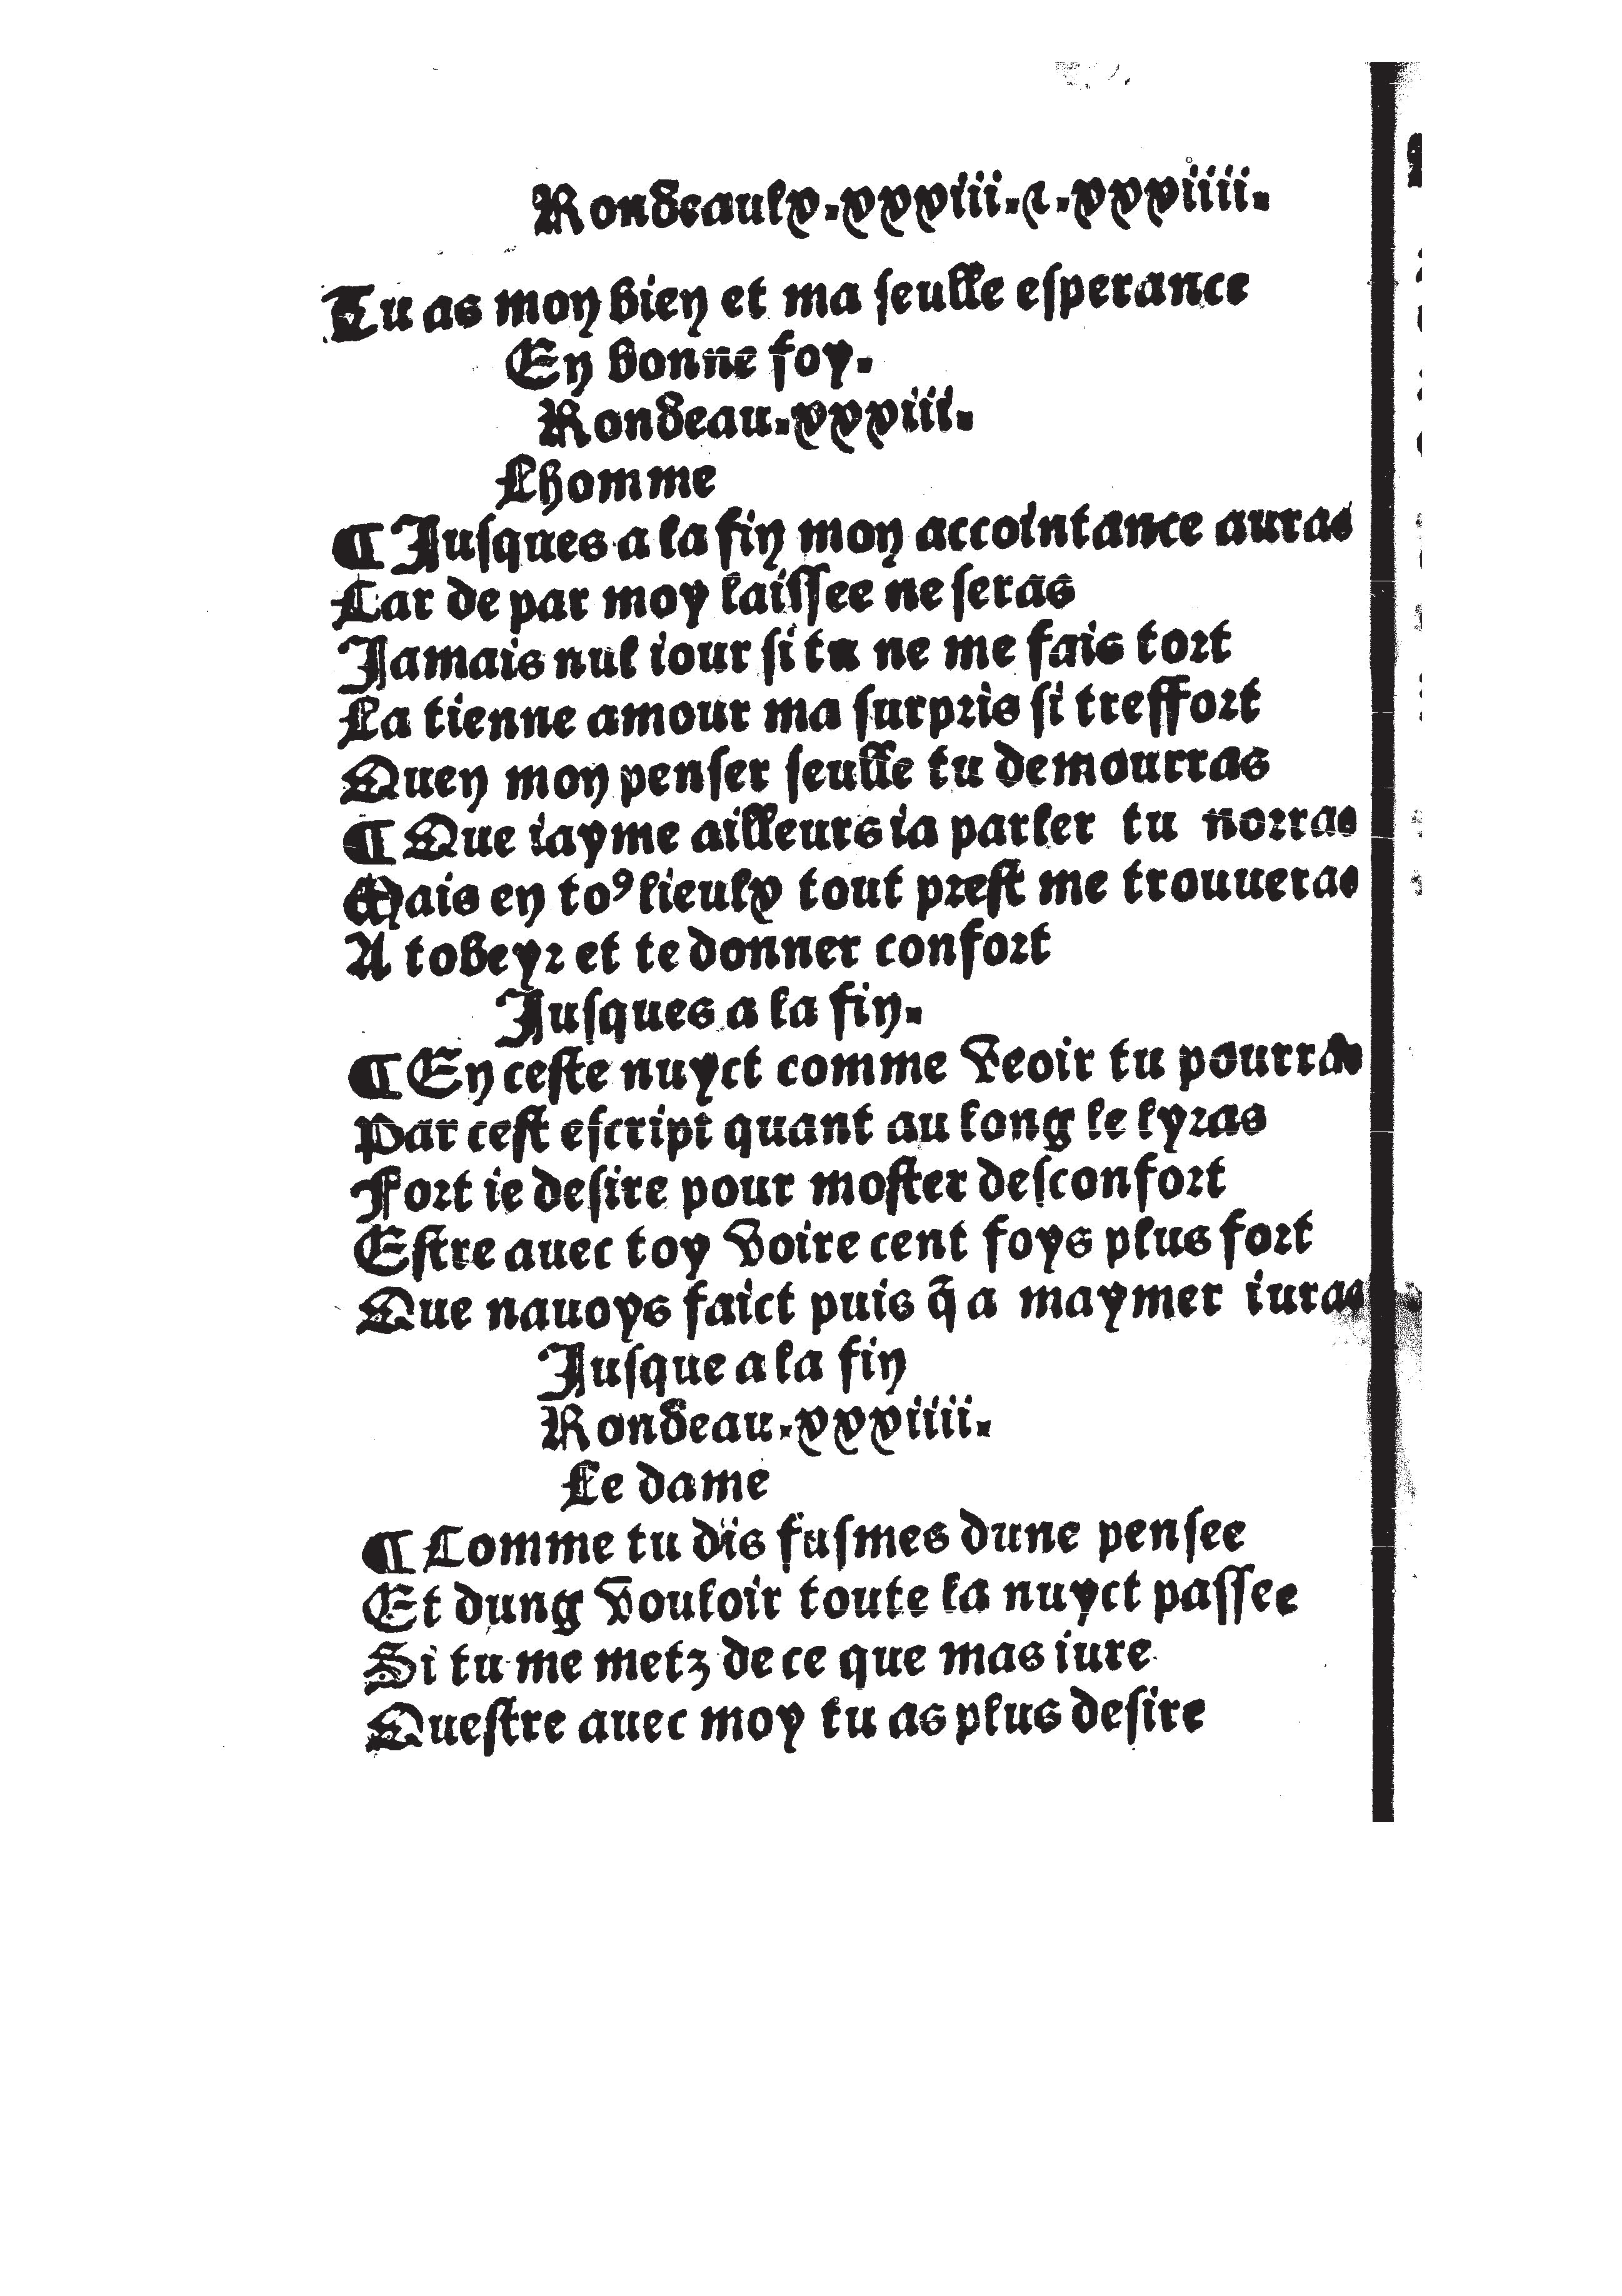 Rondeaulx.xxxiii.⁊.xxxiiii.
Tu as mon bien et ma seulle esperance
En bonne foy.
Rondeau.xxxiii.
Lhomme
¶ Jusques a la fin mon accointance auras
Car de par moy laissee ne seras
Jamais nul iour si tu ne me fais tort
La tienne amour ma surpris si treffort
Quen mon penser seulle tu demourras
¶ Que iayme ailleurs ia parler tu norras
Mais en toꝰ lieulx tout prest me trouueras
A tobeyr et te donner confort
Jusques a la fin.
¶ En ceste nuyct comme veoir tu pourras
Par cest escript quant au long le lyras
Fort ie desire pour moster desconfort
Estre auec toy voire cent foys plus fort
Que nauoys faict puis q̃ a maymer iuras
Jusque a la fin
Rondeau.xxxiiii.
Le dame
¶ Comme tu dis fusmes dune pensee
Et dung vouloir toute la nuyct passee
Si tu me metz de ce que mas iure
Questre auec moy tu as plus desire